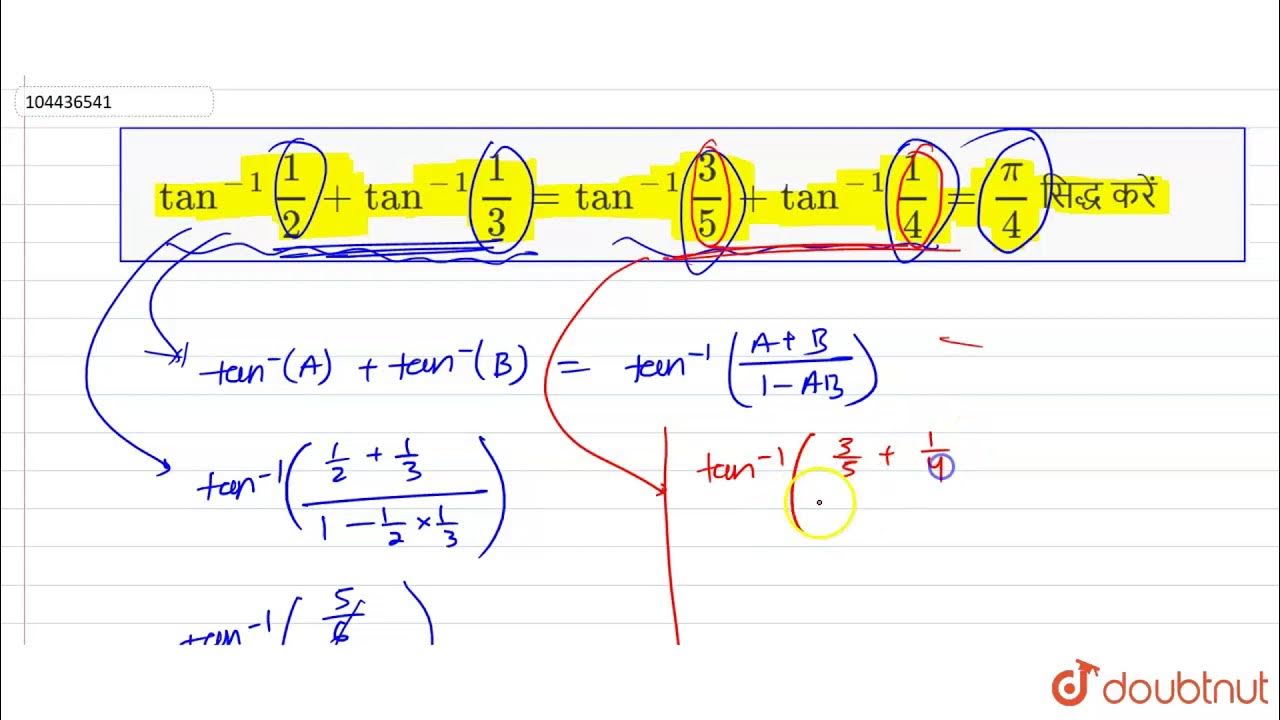 104436541
tan⁻¹ 1/2 + tan⁻¹ 1/3 = tan⁻¹ 3/5 + tan⁻¹ 1/4 = π/4 सिद्ध करें
tan⁻(A) + tan⁻(B) = tan⁻¹(A+B / 1-AB)
tan⁻¹(1/2 + 1/3 / 1 - 1/2 × 1/3)
tan⁻¹(3/5 + 1/4
tan⁻¹(5/6)
doubtnut